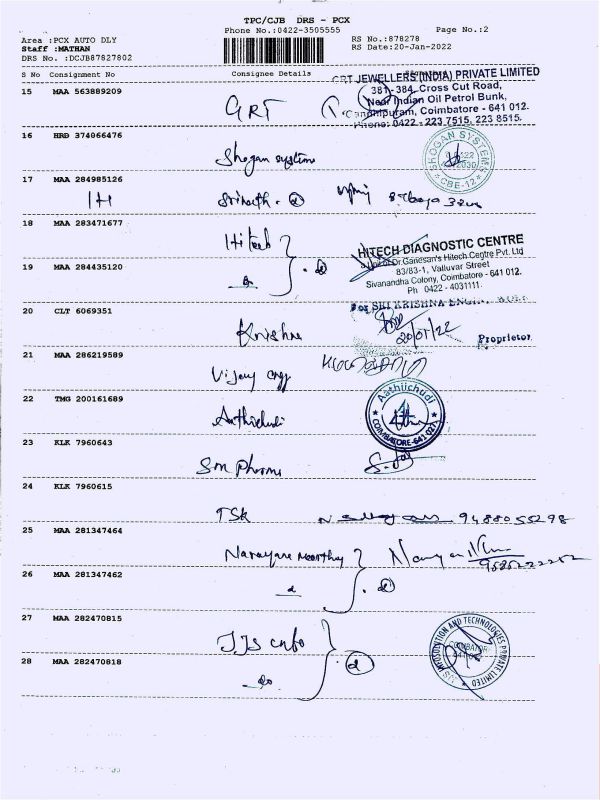 TPC/CJB DRS - PCX
Phone No.:0422-3505555
Page No.:2
Area :PCX AUTO DLY
Staff :MATHAN
DRS No. :DCJB87827802
RS No.:878278
RS Date:20-Jan-2022
S No Consignment No Consignee Details
15 MAA 563889209 GRT
GRT JEWELLERS (INDIA) PRIVATE LIMITED
381-384, Cross Cut Road,
Near Indian Oil Petrol Bunk,
Gandhipuram, Coimbatore - 641 012.
Phone: 0422 - 223 7515, 223 8515.
16 HRD 374066476 Shogan systems
SHOGAN SYSTEMS
CBE-12
17 MAA 284985126 Srinath
18 MAA 283471677 Hitech
HITECH DIAGNOSTIC CENTRE
a Unit of Dr.Ganesan's Hitech Centre Pvt. Ltd
83/83-1, Valluvar Street
Sivanandha Colony, Coimbatore - 641 012.
Ph 0422 - 4031111
19 MAA 284435120
20 CLT 6069351 Krishna
For SRI KRISHNA
20/01/22
Proprietor
21 MAA 286219589 Vijay engg
22 TMG 200161689 Aathichudi
Aathiichudi
COIMBATORE-641 021
23 KLK 7960643 Sm pharma
24 KLK 7960615 TSK 9488055298
25 MAA 281347464 Narayana moorthy
26 MAA 281347462
27 MAA 282470815 JJS info
JJS INFOSOLUTION AND TECHNOLOGIES PRIVATE LIMITED
28 MAA 282470818 do